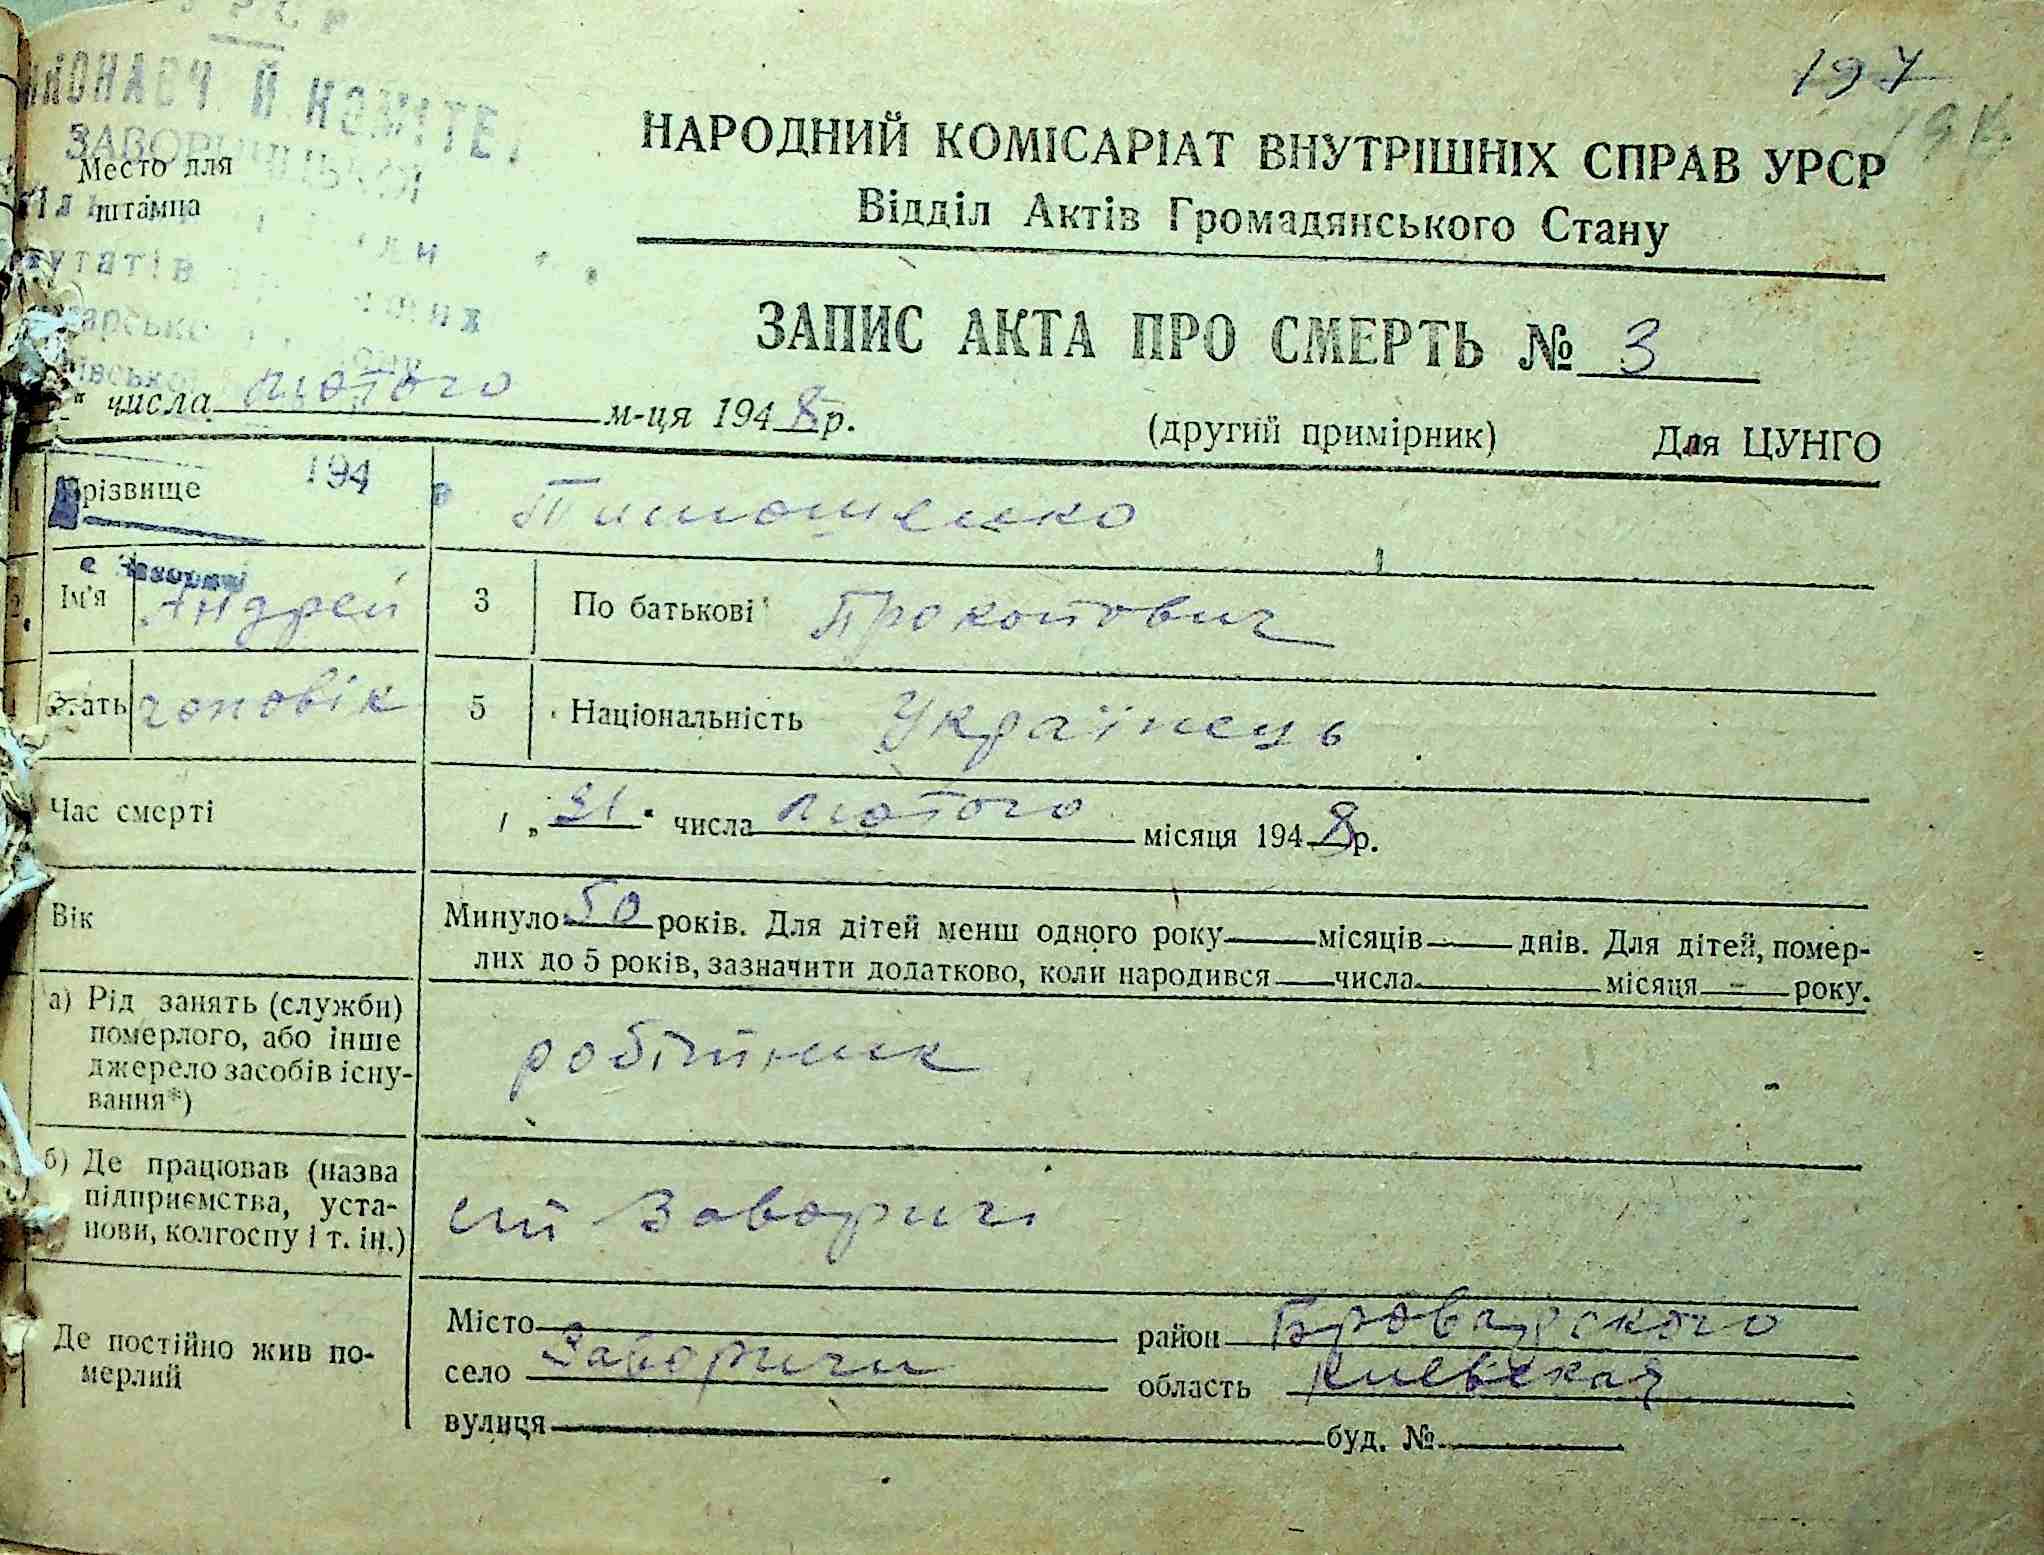 197
НАРОДНИЙ КОМІСАРІАТ ВНУТРІШНІХ СПРАВ УРСР
Відділ Актів Громадянського Стану
Место для
штампа
ЗАПИС АКТА ПРО СМЕРТЬ № 3
" числа лютого м-ця 1948 р.
(другий примірник) Для ЦУНГО
Прізвище 194 Тимошенко
Ім'я Андрей 3 По батькові Прокопович
Стать чоловік 5 Національність Українець
Час смерті „ 21 " числа лютого місяця 1948 р.
Вік Минуло 50 років. Для дітей менш одного року місяців днів. Для дітей, помер-
лих до 5 років, зазначити додатково, коли народився числа місяця року.
а) Рід занять (служби)
померлого, або інше
джерело засобів існу-
вання*)
робітник
б) Де працював (назва
підприємства, уста-
нови, колгоспу і т. ін.)
Заворичі
Де постійно жив по-
мерлий
Місто район Броварского
село Заворичи область Киевская
вулиця буд. №